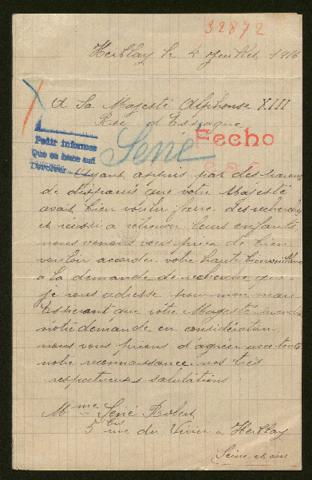 32872
Herblay le 4 Juillet 1916
A Sa Majesté Alphonse XIII
Roi d'Espagne
Pedir informes
Que se hace
Fecho
Sené
Ayant appris par des
de disparus que votre Majesté
avait bien voulu faire des recherches
et réussi a retrouver leurs enfants
nous venons vous prier de bien
vouloir accorder votre haute
a la demande de recherche que
je vous adresse pour mon mari
Esperant que votre Majesté prendra
notre demande en considération
nous vous prions d'agréer avec toute
notre reconnaissance nos très
respectueuses salutations
Mme Sené Robert
5 bis rue du Vivier a Herblay
Seine et Oise